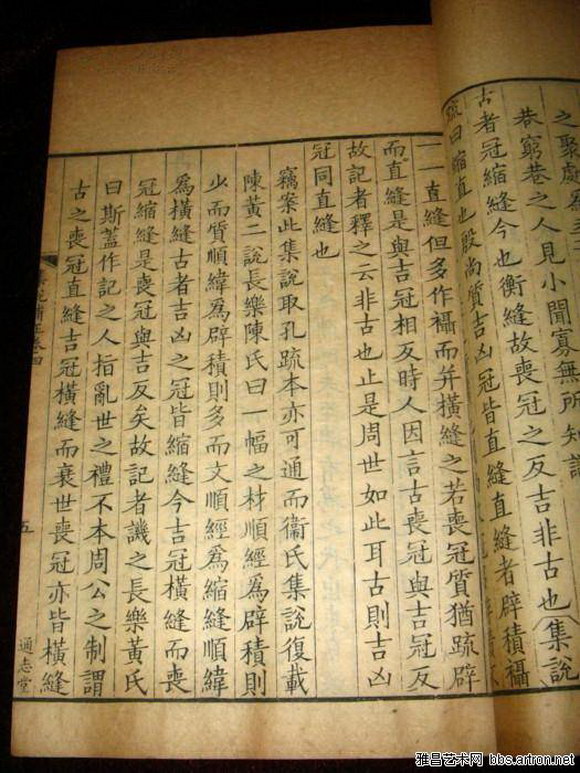 之聚處
巷窮巷之人見小聞寡無所知識
古者冠縮縫今也衡縫故喪冠之反吉非古也集說
疏曰縮直也殷尚質吉冠皆直縫直縫者辟積襵
一一直縫但多作襵而并橫縫之若喪冠質猶疏辟
而直縫是與吉冠相反時人因言古喪冠與吉冠反
故記者釋之云非古也止是周世如此耳古則吉凶
冠同直縫也
竊案此集說取孔疏本亦可通而衞氏集說復載
陳黃二說長樂陳氏曰一幅之材順經為辟積則
少而質順緯為辟積則多而文順經為縮縫順緯
為橫縫古者吉凶之冠皆縮縫今吉冠橫縫而喪
冠縮縫是喪冠與吉反矣故記者譏之長樂黃氏
曰斯蓋作記之人指亂世之禮不本周公之制謂
古之喪冠直縫吉冠橫縫而衰世喪冠亦皆橫縫
卷四
五
通志堂
雅昌艺术网 bbs.artron.net